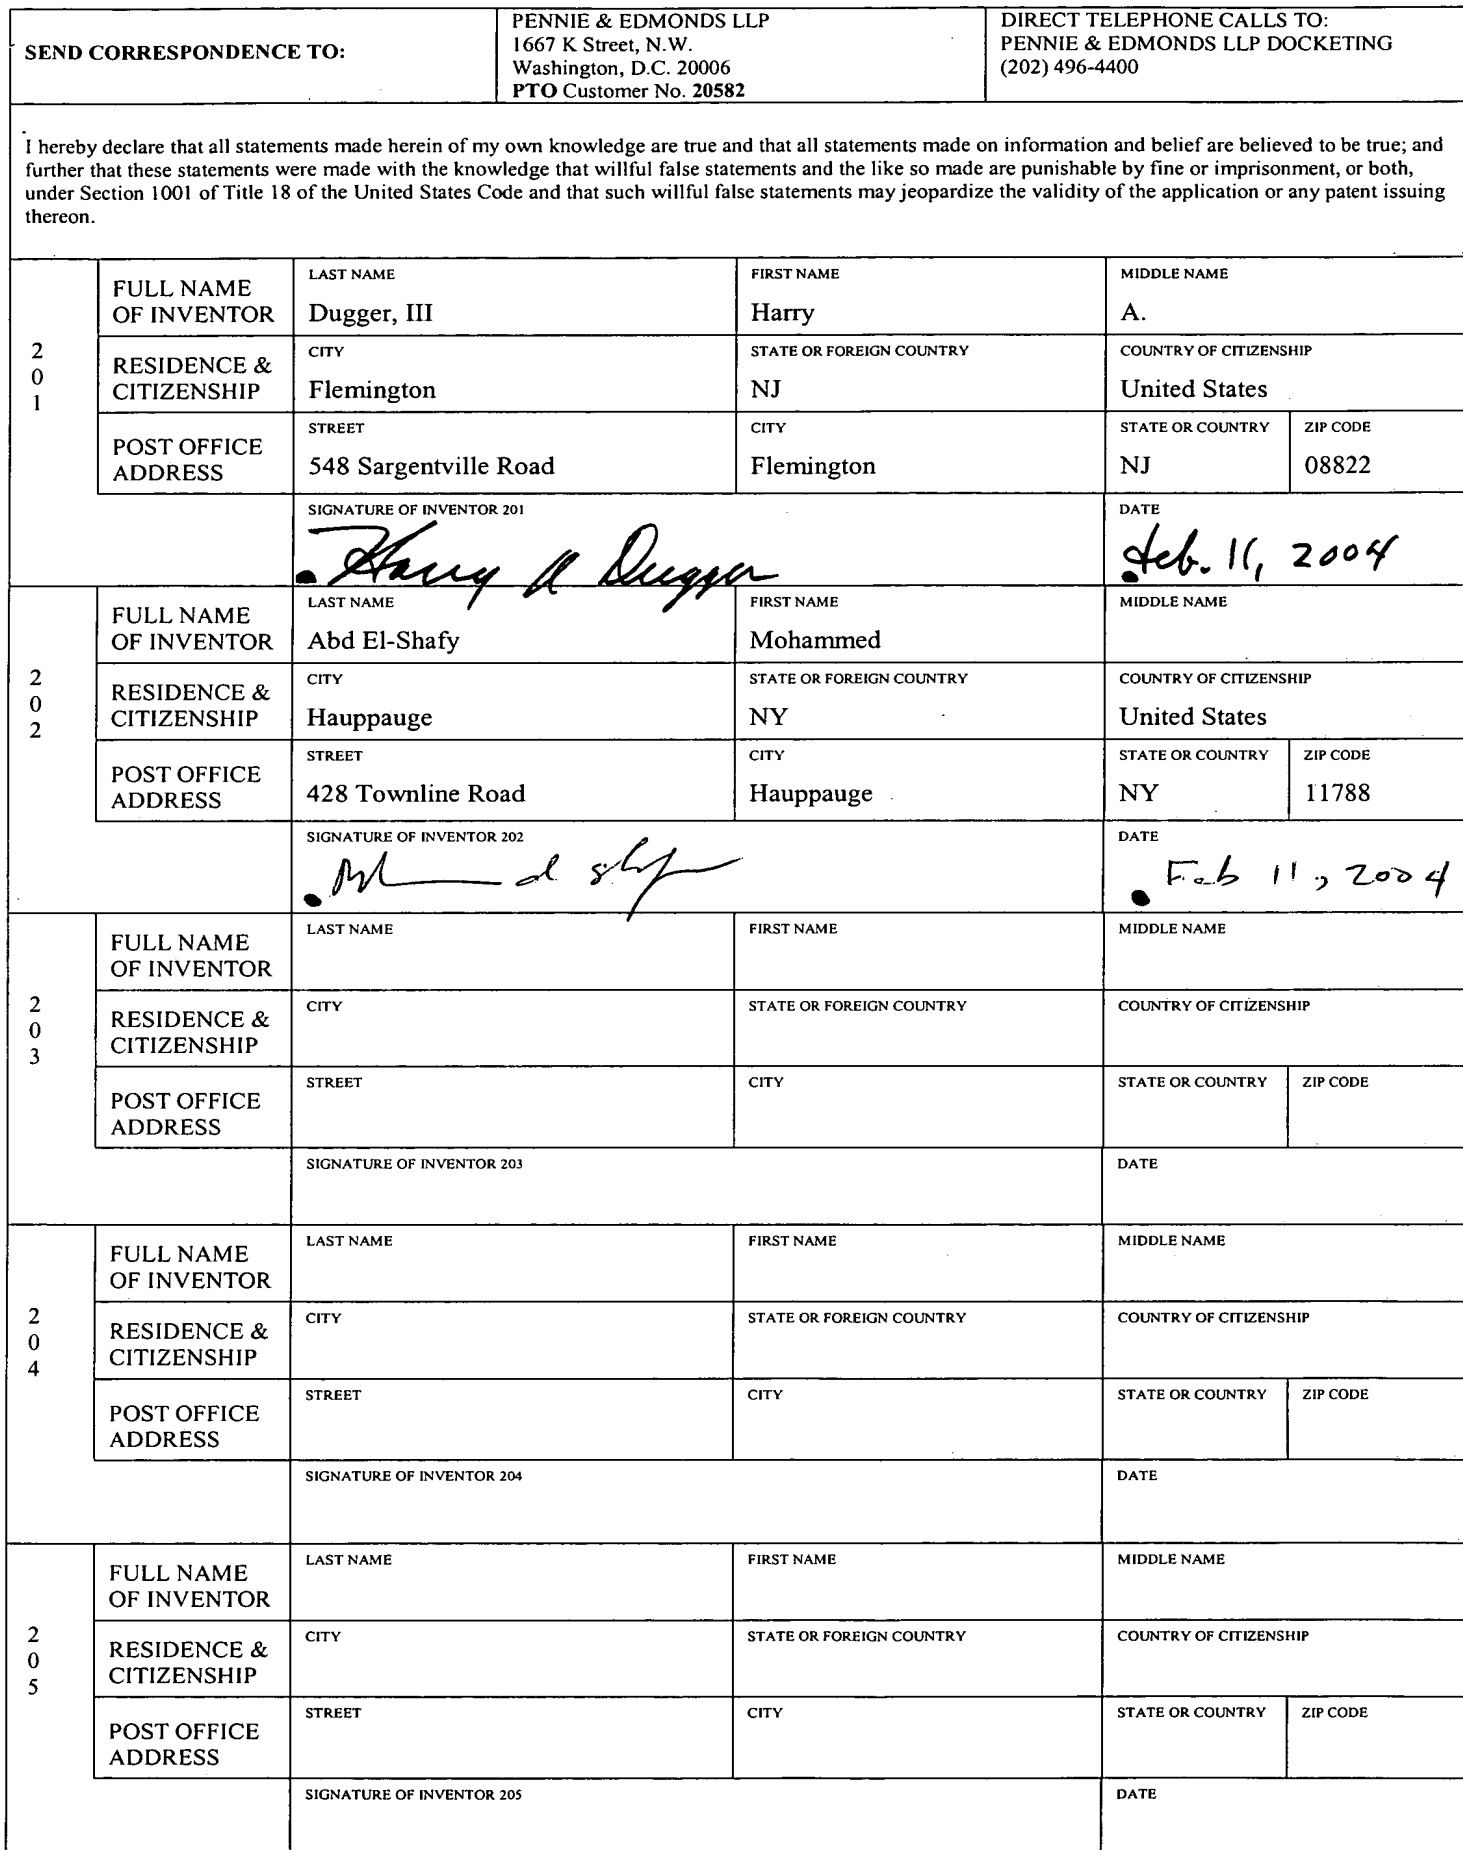 SEND CORRESPONDENCE TO:
PENNIE & EDMONDS LLP
1667 K Street, N.W.
Washington, D.C. 20006
PTO Customer No. 20582
DIRECT TELEPHONE CALLS TO:
PENNIE & EDMONDS LLP DOCKETING
(202) 496-4400
I hereby declare that all statements made herein of my own knowledge are true and that all statements made on information and belief are believed to be true; and
further that these statements were made with the knowledge that willful false statements and the like so made are punishable by fine or imprisonment, or both,
under Section 1001 of Title 18 of the United States Code and that such willful false statements may jeopardize the validity of the application or any patent issuing
thereon.
201
FULL NAME
OF INVENTOR
LAST NAME
Dugger, III
FIRST NAME
Harry
MIDDLE NAME
A.
RESIDENCE &
CITIZENSHIP
CITY
Flemington
STATE OR FOREIGN COUNTRY
NJ
COUNTRY OF CITIZENSHIP
United States
POST OFFICE
ADDRESS
STREET
548 Sargentville Road
CITY
Flemington
STATE OR COUNTRY
NJ
ZIP CODE
08822
SIGNATURE OF INVENTOR 201
Harry A Dugger
DATE
Feb. 11, 2004
202
FULL NAME
OF INVENTOR
LAST NAME
Abd El-Shafy
FIRST NAME
Mohammed
MIDDLE NAME
RESIDENCE &
CITIZENSHIP
CITY
Hauppauge
STATE OR FOREIGN COUNTRY
NY
COUNTRY OF CITIZENSHIP
United States
POST OFFICE
ADDRESS
STREET
428 Townline Road
CITY
Hauppauge
STATE OR COUNTRY
NY
ZIP CODE
11788
SIGNATURE OF INVENTOR 202
DATE
Feb 11, 2004
203
FULL NAME
OF INVENTOR
LAST NAME
FIRST NAME
MIDDLE NAME
RESIDENCE &
CITIZENSHIP
CITY
STATE OR FOREIGN COUNTRY
COUNTRY OF CITIZENSHIP
POST OFFICE
ADDRESS
STREET
CITY
STATE OR COUNTRY
ZIP CODE
SIGNATURE OF INVENTOR 203
DATE
204
FULL NAME
OF INVENTOR
LAST NAME
FIRST NAME
MIDDLE NAME
RESIDENCE &
CITIZENSHIP
CITY
STATE OR FOREIGN COUNTRY
COUNTRY OF CITIZENSHIP
POST OFFICE
ADDRESS
STREET
CITY
STATE OR COUNTRY
ZIP CODE
SIGNATURE OF INVENTOR 204
DATE
205
FULL NAME
OF INVENTOR
LAST NAME
FIRST NAME
MIDDLE NAME
RESIDENCE &
CITIZENSHIP
CITY
STATE OR FOREIGN COUNTRY
COUNTRY OF CITIZENSHIP
POST OFFICE
ADDRESS
STREET
CITY
STATE OR COUNTRY
ZIP CODE
SIGNATURE OF INVENTOR 205
DATE